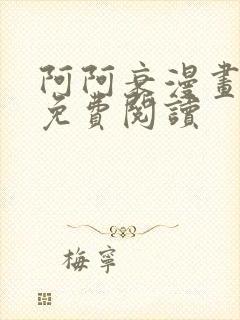 阿阿衰漫畫
免費閱讀
梅寧